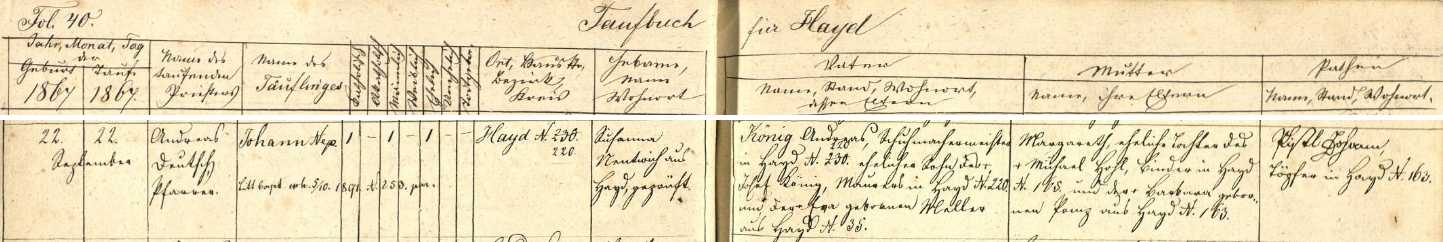 Fol. 40.
Taufbuch
für Hayd
Jahr, Monat, Tag
der
Geburt Taufe
1867 1867.
Name des
taufenden
Priesters
Name des
Täuflinges
Katholisch
Männlich
Weiblich
Ehelich
Unehelich
Ort, Haus Nr.,
Bezirk,
Kreis
Hebame,
Name
Wohnort
Vater
Name, Stand, Wohnort,
dessen Eltern
Mutter
Name, ihre Eltern
Pathen
Name, Stand, Wohnort.
22. 22.
September
Andreas
Deutsch
Pfarrer.
Johann Nep.
Litt. bapt. exh. 5/10. 1891. N. 253. par.
1 – 1 – 1 – –
Hayd N. 230.
220.
Susanna
Nentwich aus
Hayd, geprüft.
König Andreas, Schuhmachermeister
220
in Hayd N. 230. ehelicher Sohn des
Josef König, Maurers in Hayd N. 220.
und der Eva gebornen Meller
aus Hayd N. 35.
Margareth, eheliche Tochter des
+ Michael Hohl, Binder in Hayd
N. 165. und der Barbara gebor-
nen Ponz aus Hayd N. 163.
Pistl Johann,
Töpfer in Hayd N. 163.